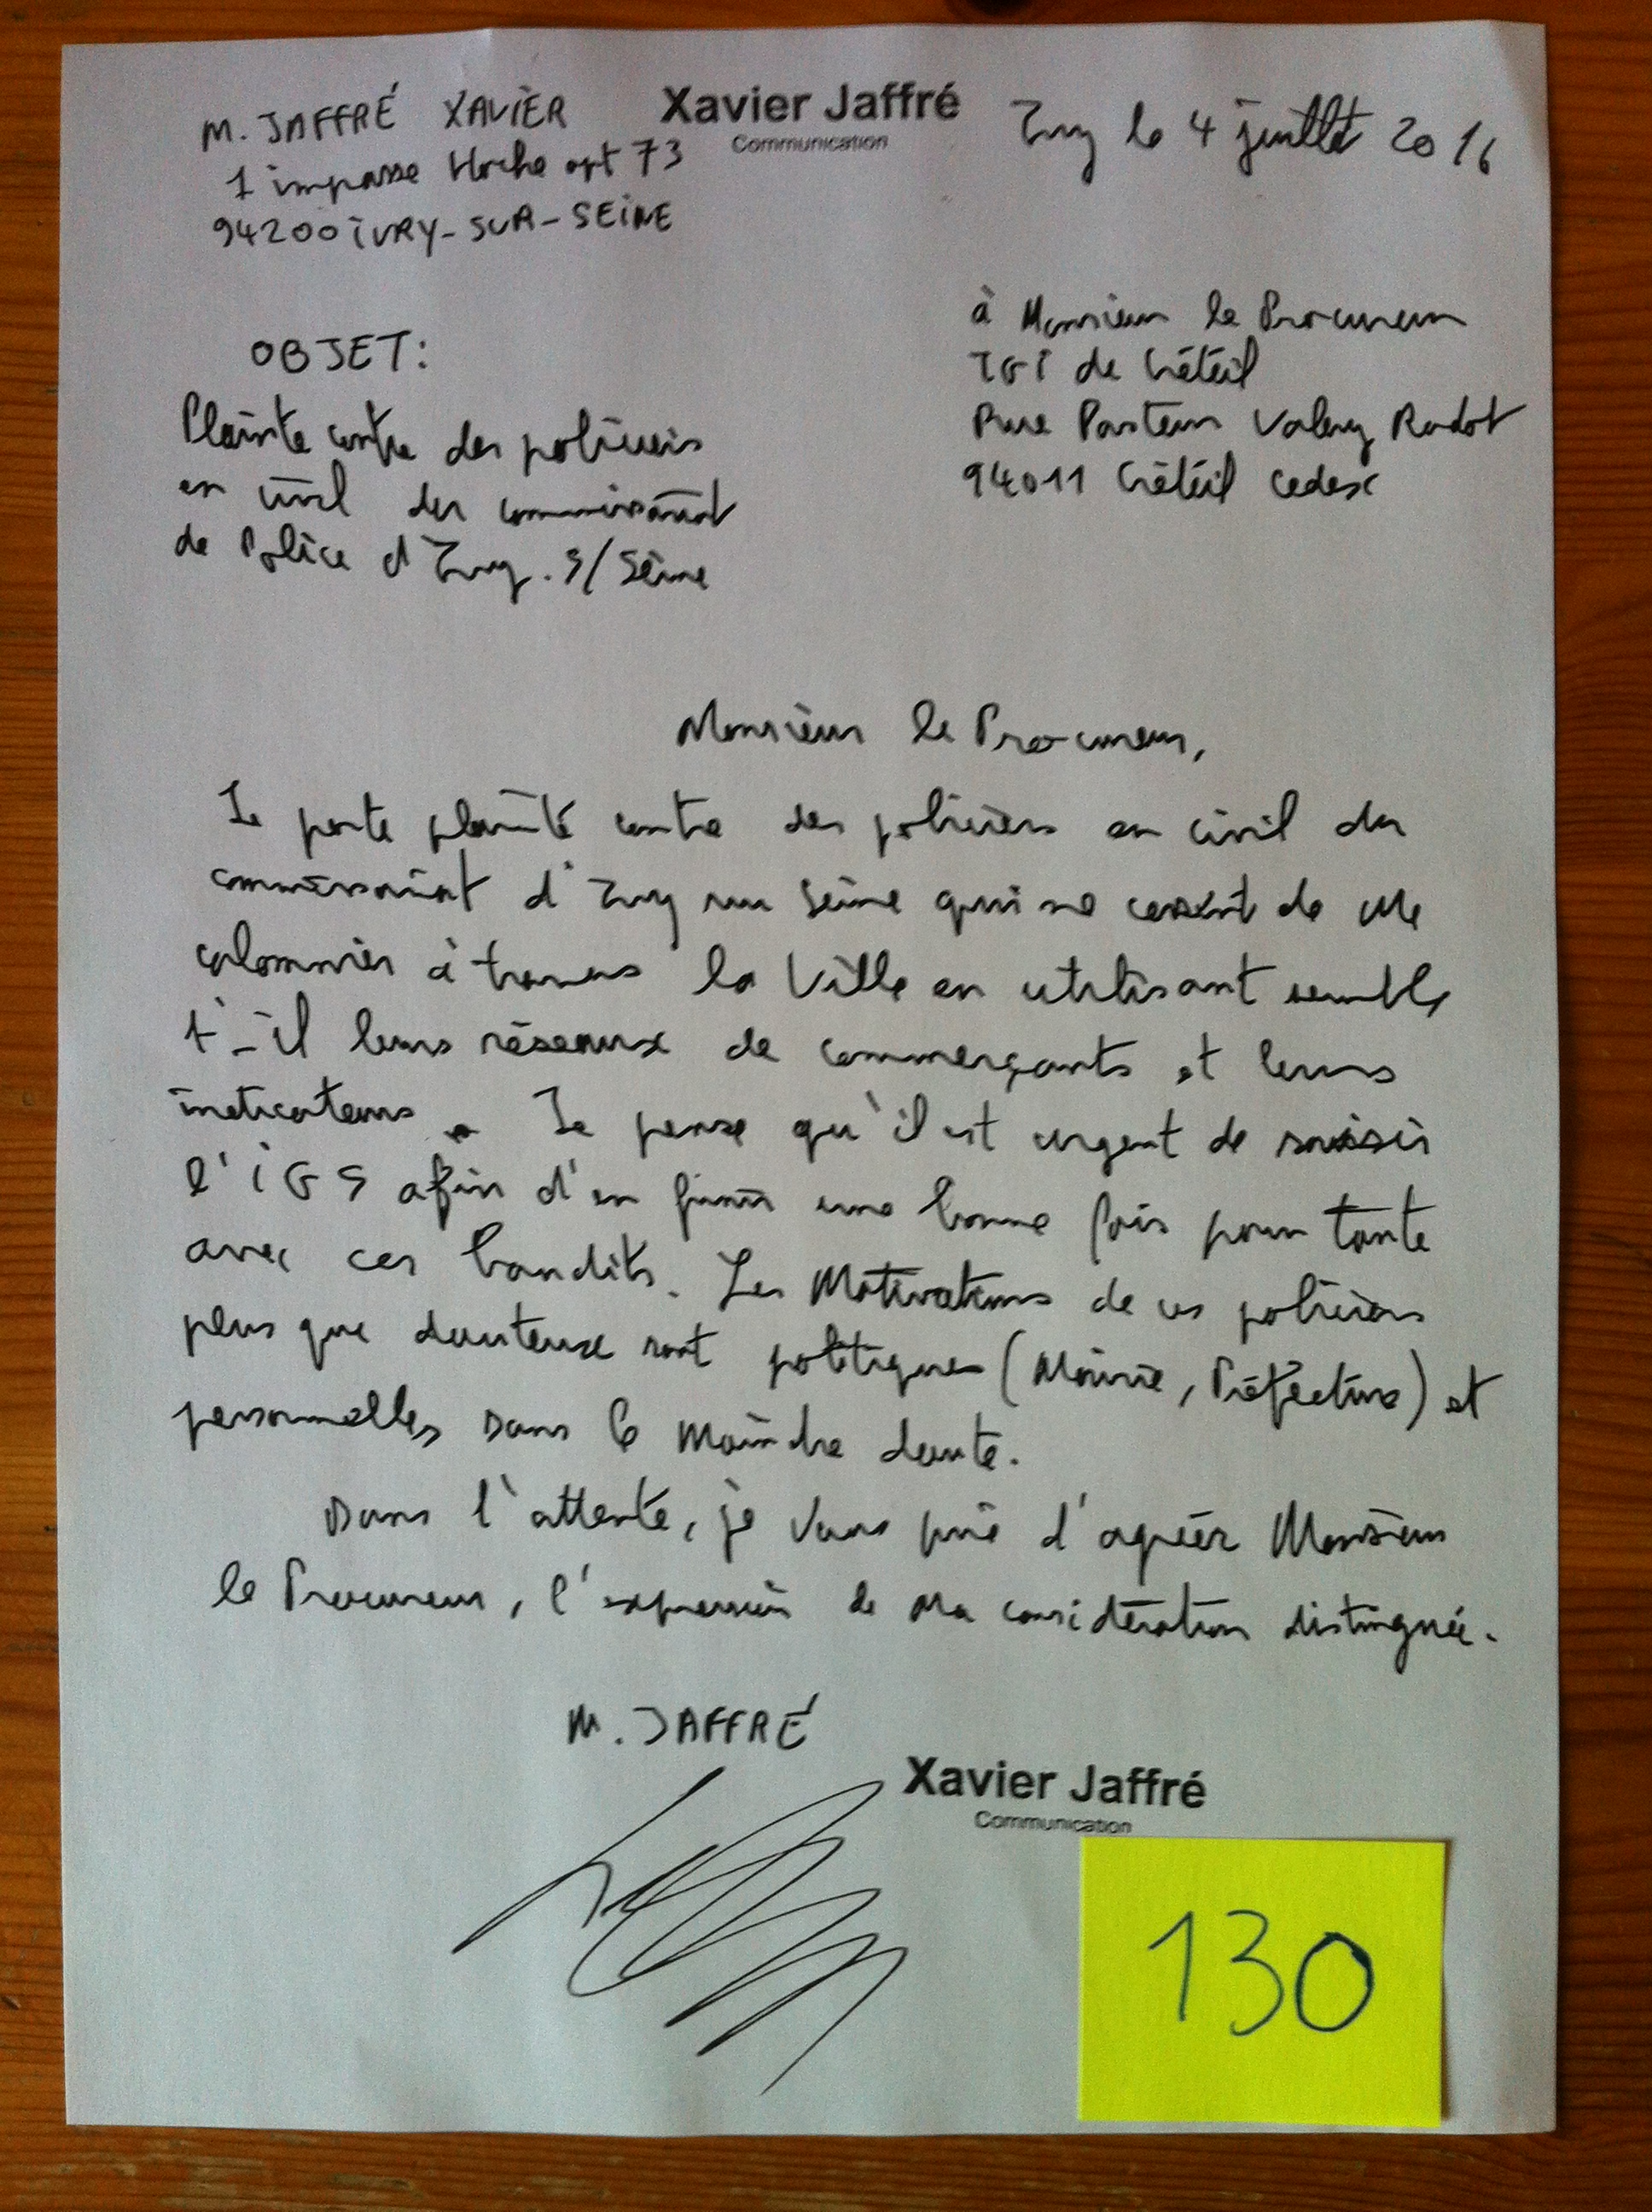 M. JAFFRÉ XAVIER
1 impasse Hoche apt 73
94200 IVRY-SUR-SEINE
Xavier Jaffré
Communication
Ivry le 4 juillet 2016
à Monsieur le Procureur
TGI de Créteil
Rue Pasteur Valery Radot
94011 Créteil cedex
OBJET:
Plainte contre des policiers
en civil du commissariat
de Police d'Ivry. S/Seine
Monsieur le Procureur,
Je porte plainte contre des policiers en civil du
commissariat d'Ivry sur Seine qui ne cessent de me
calomnier à travers la Ville en utilisant semble
t-il leurs réseaux de commerçants et leurs
indicateurs. Je pense qu'il est urgent de saisir
l'IGS afin d'en finir une bonne fois pour toute
avec ces bandits. Les Motivations de ces policiers
plus que douteux sont politiques (Mairie, Préfecture) et
personnelles sans le moindre doute.
Dans l'attente, je vous prie d'agréer Monsieur
le Procureur, l'expression de ma considération distinguée.
M. JAFFRÉ
Xavier Jaffré
Communication
130